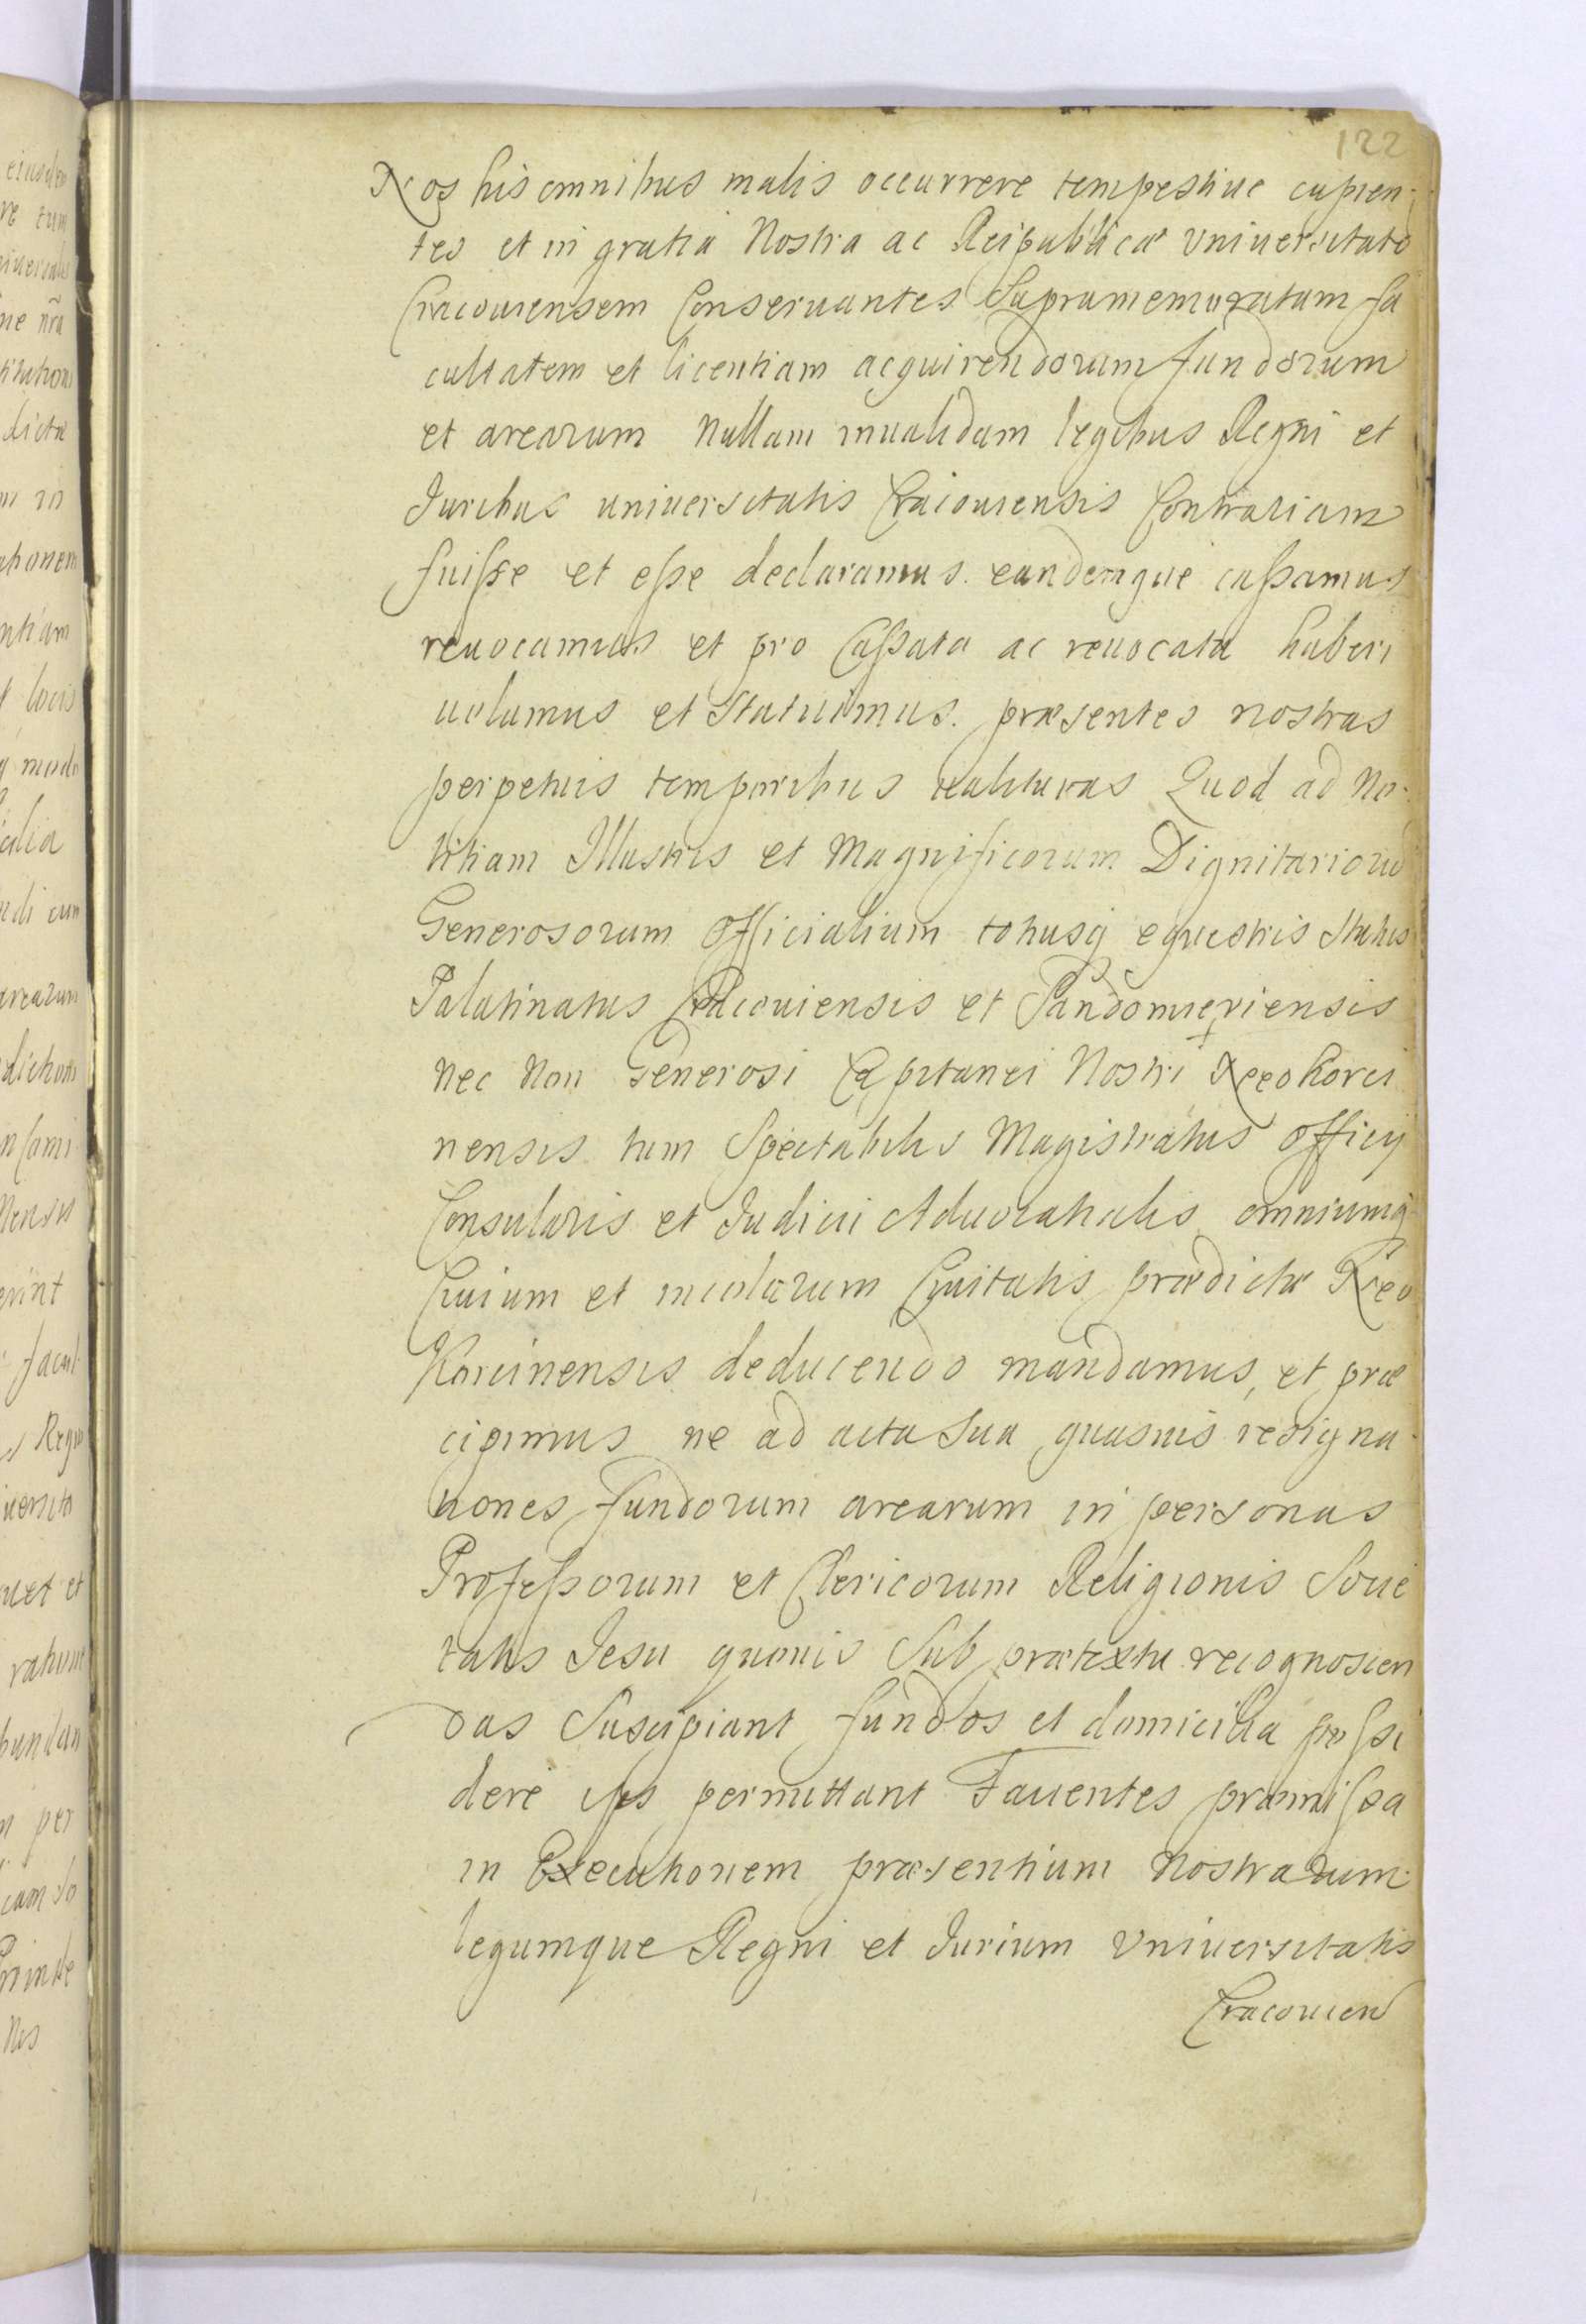 122
Nos his omnibus malis occurrere tempestiue cupien-
tes et in gratia Nostra ac Reipublicæ Vniuersitatē
Cracouiensem Conseruantes Supramemoratam fa
cultatem et licentiam acquirendorum fundorum
et arearum Nullam inualidam legibus Regni et
Juribus uniuersitatis Cracouiensis Contrariam
fuisse et esse declaramus. eandemque cassamus
reuocamus et pro Cassata ac reuocata haberi
uolumus et Statuimus. præsentes nostras
perpetuis temporibus ualituras Quod ad No-
titiam Illustris et Magnificorum Dignitariorū
Generosorum Officialium totiusq equestris Status
Palatinatus Cracouiensis et Sandomiriensis
nec Non Generosi Capitanei Nostri Neokorci
nensis tum Spectabilis Magistratus Officij
Consularis et Judicii Aduocatialis omniumq
Ciuium et incolarum Ciuitatis prædictæ Neo
Korcinensis deducendo mandamus, et præ
cipimus ne ad acta Sua quasuis resigna-
tiones fundorum arearum in personas
Professorum et Clericorum Religionis Socie
tatis Jesu quouis Sub prætextu recognoscen
das Suscipiant fundos et domicilia possi
dere ipsis permittant Fauentes præmissa
in Executionem præsentium Nostrarum
legumque Regni et Jurium Vniuersitatis
Cracouien
eiusdem
dictæ
in
locis
arearum
Regni
uet et
per